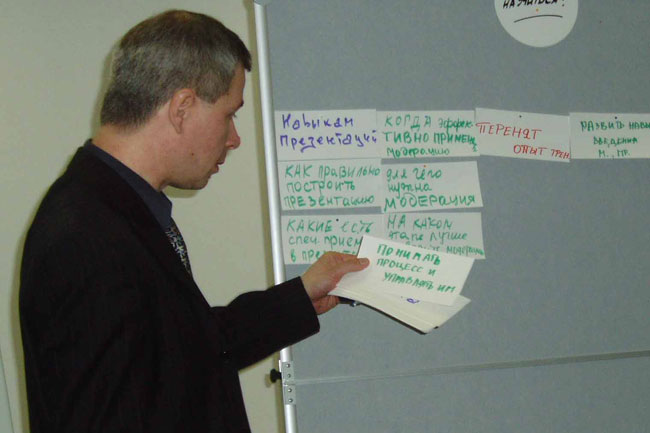 НАУЧИТЬСЯ?
Навыкам
Презентаций
КОГДА эффек
ТИВНО ПРИМЕН
модерацию
ПЕРЕНЯТ
ОПЫТ ТРЕН
РАЗВИТЬ НАВЫ
ВЕДЕНИЯ
КАК правильно
построить
презентацию
для чего
нужна
модерация
КАКИЕ есть
спец. прием
в през
НА КАКОМ
этапе лучше
модерац
ПОНИМАТЬ
ПРОЦЕСС И
УПРАВЛЯТЬ ИМ